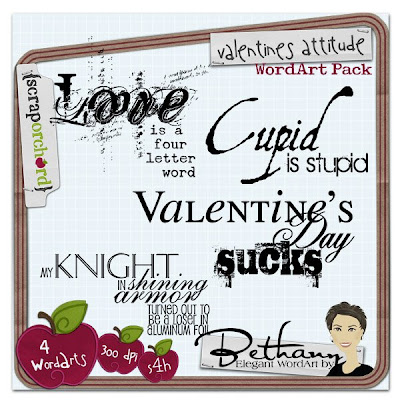 valentines attitude
WordArt Pack
{scraporchard}
Love
is a
four
letter
word
Cupid
is stupid
Valentine's
Day
sucks
my KNIGHT
in shining
armor
turned out to
be a loser in
aluminum foil
4
WordArts
300 dpi
s4h
Bethany
Elegant WordArt by